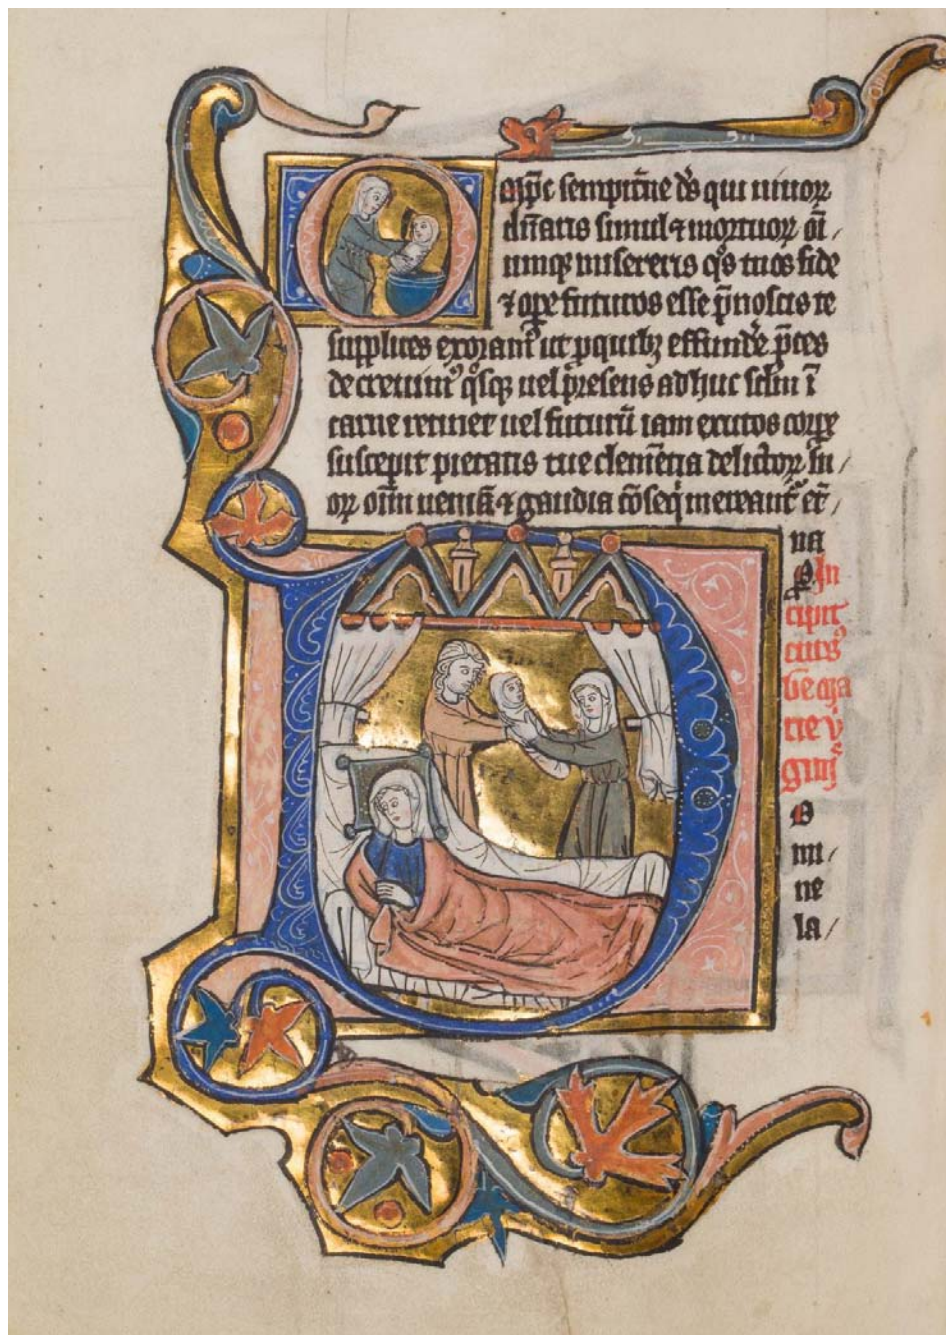 Omp̅c sempit̅ne ds̅ qui uiuoꝝ
dn̅aris simul ⁊ mortuoꝝ oi̅
umqꝫ misereris qͦs tuos fide
⁊ oꝑe futuros esse p̅noscis te
supplices exorant᷑ ut ꝓ quibꝫ effunde᷑ p̅ces
decreuimꝰ qͦsqꝫ uel p̅resens adhuc sclm̅ i̅
carne retinet uel futuru̅ iam exutos corꝑe
suscepit pietatis tue clemen̅tia delictoꝝ su
oꝝ om̅i̅ uenia̅ ⁊ gaudia co̅seqi̅ mereant᷑ et̅
na
ꝑ In
cipit
curs᷑
be̅ ma
rie v̅
gini᷑s
D
mi
ne
la